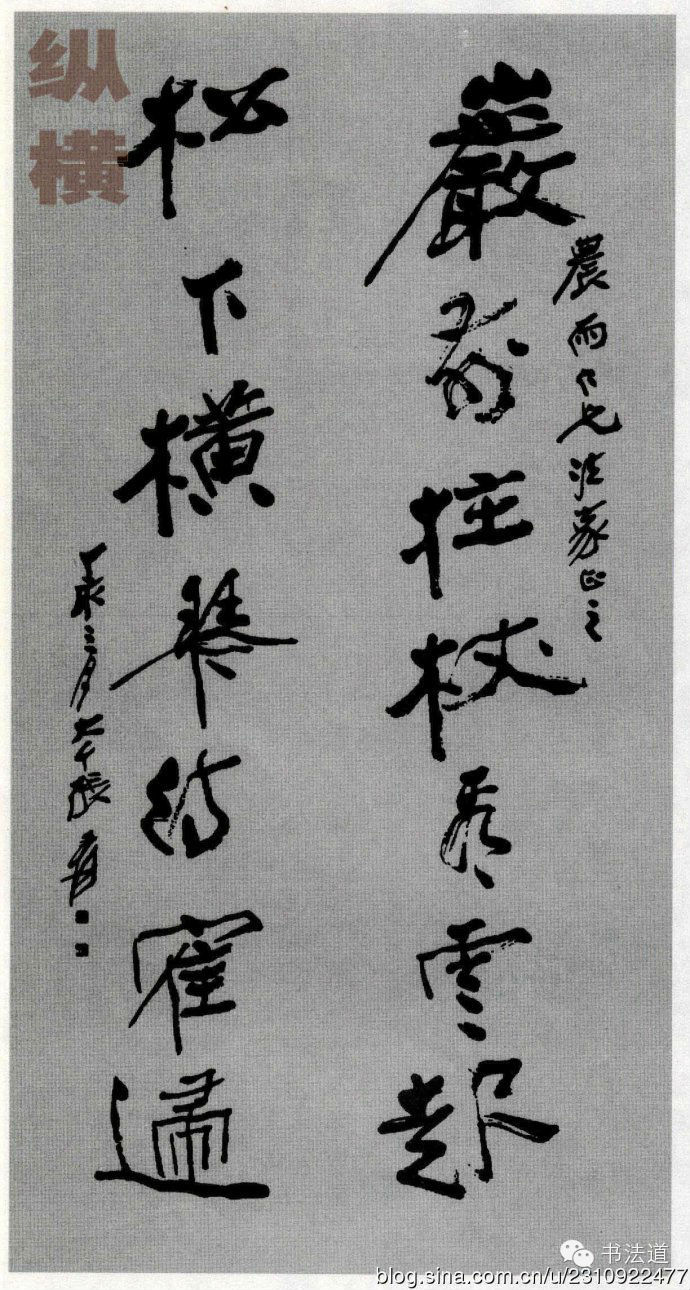 巖前拄杖看雲起
農雨仁兄法家正之
松下橫琴待寉歸
丁未三月大千張爰
纵横
书法道
blog.sina.com.cn/u/2310922477